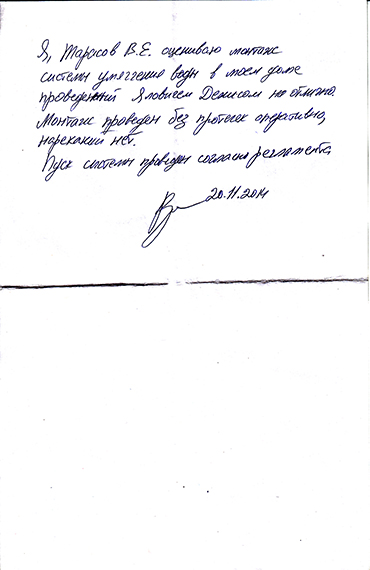 Я, Тарасов В.Е. оцениваю монтаж
системы умягчения воды в моем доме
проведенный Яловисем Денисом на отлично.
Монтаж проведен без протечек оперативно,
нареканий нет.
Пуск системы проведен согласно регламента
20.11.2014